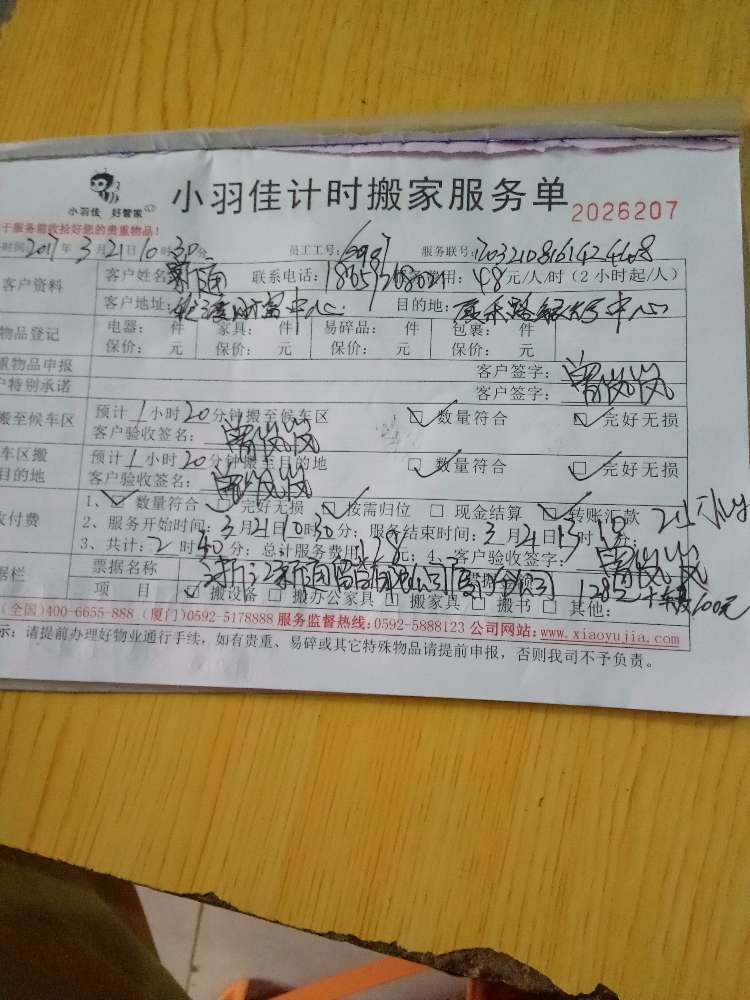 小羽佳 好管家
小羽佳计时搬家服务单
2026207
于服务前收拾好您的贵重物品!
时间:2017年3月21日10时30分 员工工号: 服务联号:
客户资料 客户姓名:新通 联系电话: 费用:48元/人/时(2小时起/人)
客户地址:财富中心 目的地:中心
物品登记 电器: 件 家具: 件 易碎品: 件 包裹: 件
保价: 元 保价: 元 保价: 元 保价: 元
重物品申报 客户签字:
户特别承诺 客户签字:
搬至候车区 预计1小时20分钟搬至候车区 数量符合 完好无损
客户验收签名:
车区搬 预计1小时20分钟搬至目的地 数量符合 完好无损
目的地 客户验收签名:
收付费 1、数量符合 完好无损 按需归位 现金结算 转账汇款
2、服务开始时间:3月21日10时30分;服务结束时间:3月21日13时10分;
3、共计:2时40分;总计服务费用:128元;4、客户验收签字:
据栏 票据名称
项目 搬设备 搬办公家具 搬家具 搬书 其他: 128元+车费100元
(全国)400-6655-888 (厦门)0592-5178888 服务监督热线:0592-5888123 公司网站:www.xiaoyujia.com
示:请提前办理好物业通行手续,如有贵重、易碎或其它特殊物品请提前申报,否则我司不予负责。